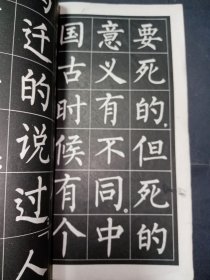 要死的，但死的
意义有不同。中
国古时候有个
马迁的说过，人